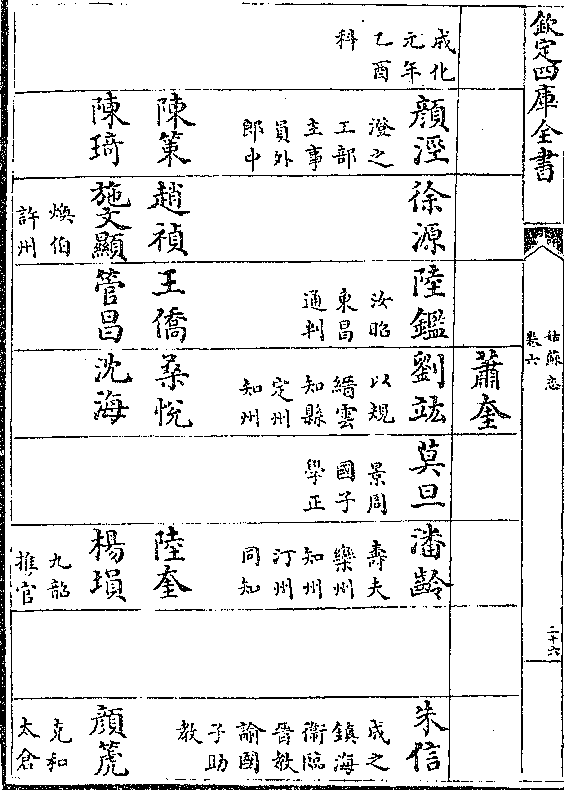 欽定四庫全書
姑蘇志
卷六
二十六
蕭奎
成化
元年
乙酉
科
顔涇
澄之
工部
主事
員外
郎中
徐源
陸鑑
汝昭
東昌
通判
劉竑
以規
縉雲
知縣
定州
知州
莫旦
景周
國子
學正
潘齡
壽夫
欒州
知州
汀州
同知
朱信
成之
鎮海
衛臨
晉教
諭國
子助
教
陳策
趙禎
王僑
桑悅
陸奎
陳琦
施文顯
煥伯
許州
管昌
沈海
楊塤
九韶
推官
顔箎
克和
太倉